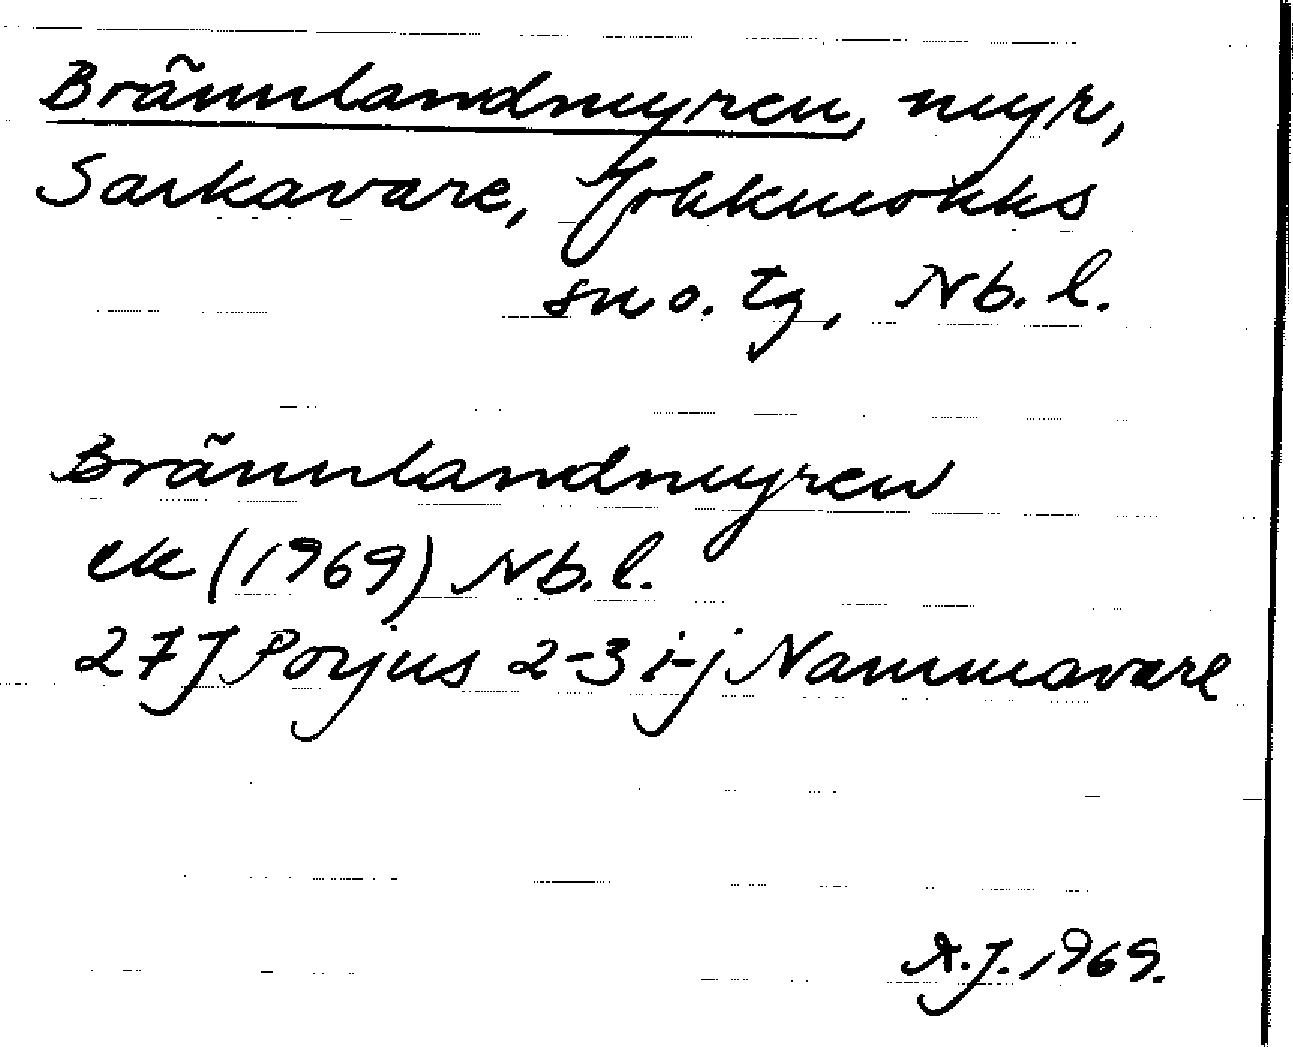 Brännlandmyren, myr,
Sarkavare, Jokkmokks
sn o. tg, Nb. l.
Brännlandmyren
ek (1969) Nb. l.
27J Porjus 2-3 i-j Nammavare
A.J. 1969.